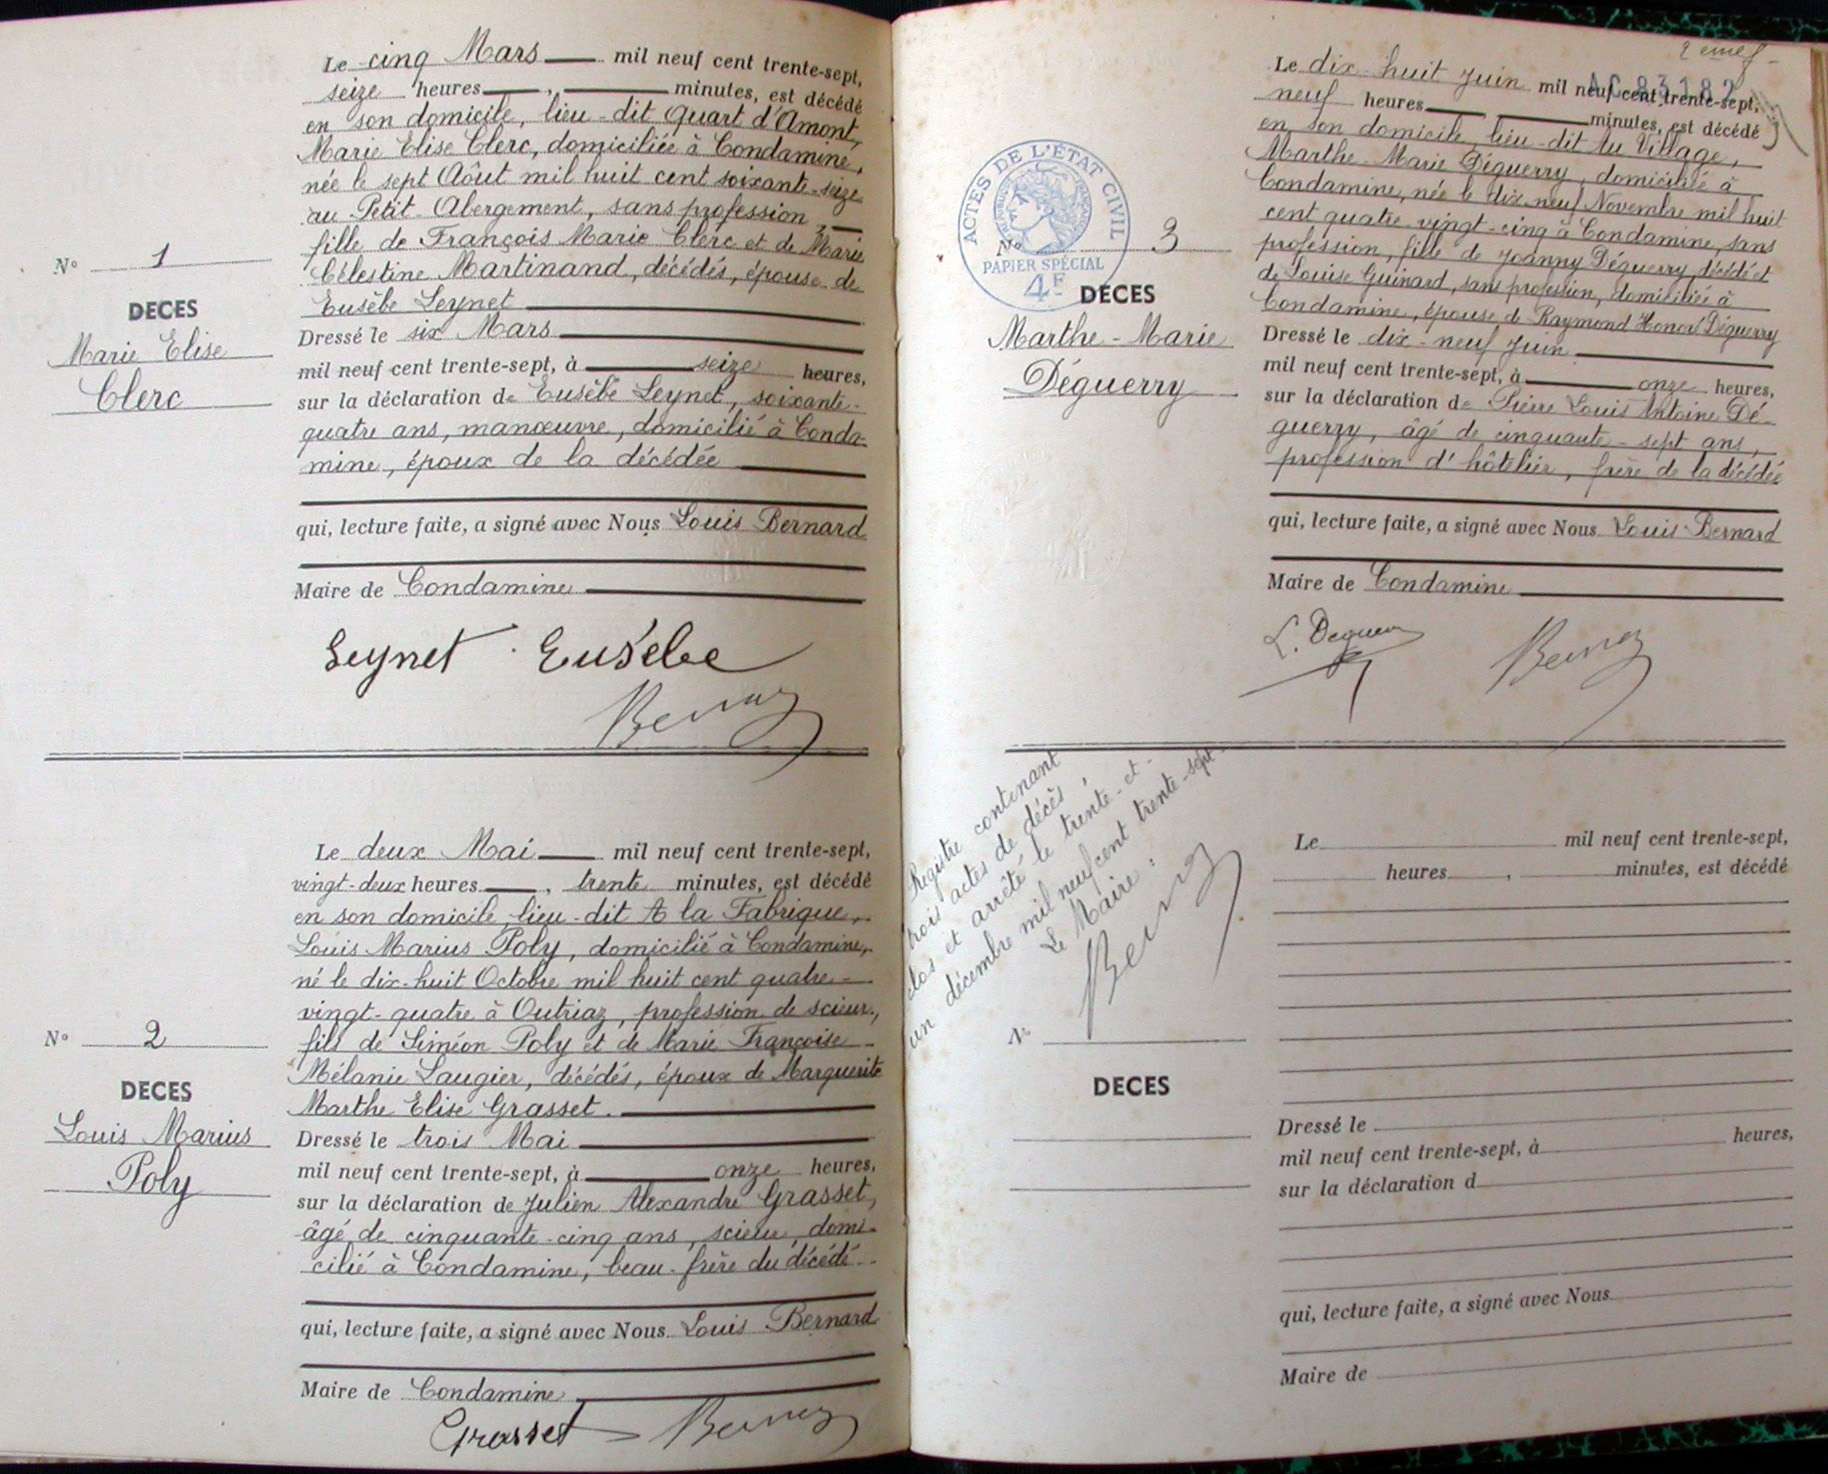 Le cinq Mars mil neuf cent trente-sept,
seize heures , minutes, est décédé
en son domicile, lieu-dit Quart d'Amont,
Marie Elise Clerc, domiciliée à Condamine,
née le sept Août mil huit cent soixante-seize
au Petit-Abergement, sans profession,
fille de François Marie Clerc et de Marie
Célestine Martinand, décédés, épouse de
Eusèbe Seynet
N° 1
DECES
Marie Elise
Clerc
Dressé le six Mars
mil neuf cent trente-sept, à seize heures,
sur la déclaration de Eusèbe Seynet, soixante-
quatre ans, manœuvre, domicilié à Conda-
mine, époux de la décédée
qui, lecture faite, a signé avec Nous Louis Bernard
Maire de Condamine
Seynet Eusèbe
Le deux Mai mil neuf cent trente-sept,
vingt-deux heures , trente minutes, est décédé
en son domicile lieu-dit A la Fabrique,
Louis Marius Poly, domicilié à Condamine,
né le dix-huit Octobre mil huit cent quatre-
vingt-quatre à Outriaz, profession de scieur,
fils de Siméon Poly et de Marie Françoise
Mélanie Laugier, décédés, époux de Marguerite
Marthe Elise Grasset.
N° 2
DECES
Louis Marius
Poly
Dressé le trois Mai
mil neuf cent trente-sept, à onze heures,
sur la déclaration de Julien Alexandre Grasset,
âgé de cinquante-cinq ans, scieur, domi-
cilié à Condamine, beau-frère du décédé
qui, lecture faite, a signé avec Nous Louis Bernard
Maire de Condamine
Grasset
AC 83182
Le dix-huit Juin mil neuf cent trente-sept,
neuf heures minutes, est décédé
en son domicile lieu-dit Au Village,
Marthe-Marie Déguerry, domiciliée à
Condamine, née le dix-neuf Novembre mil huit
cent quatre-vingt-cinq à Condamine, sans
profession, fille de Joanny Déguerry décédé et
de Louise Guinard, sans profession, domiciliée à
Condamine, épouse de Raymond Honoré Déguerry
ACTES DE L'ÉTAT CIVIL
PAPIER SPÉCIAL
4F
N° 3
DECES
Marthe-Marie
Déguerry
Dressé le dix-neuf Juin
mil neuf cent trente-sept, à onze heures,
sur la déclaration de Pierre Louis Antoine Dé-
guerry, âgé de cinquante-sept ans,
profession d'hôtelier, frère de la décédée
qui, lecture faite, a signé avec Nous Louis Bernard
Maire de Condamine
Registre contenant
trois actes de décès,
clos et arrêté le trente-et-
un décembre mil neuf cent trente-sept.
Le Maire :
N°
DECES
Le mil neuf cent trente-sept,
heures , minutes, est décédé
Dressé le
mil neuf cent trente-sept, à heures,
sur la déclaration d
qui, lecture faite, a signé avec Nous
Maire de